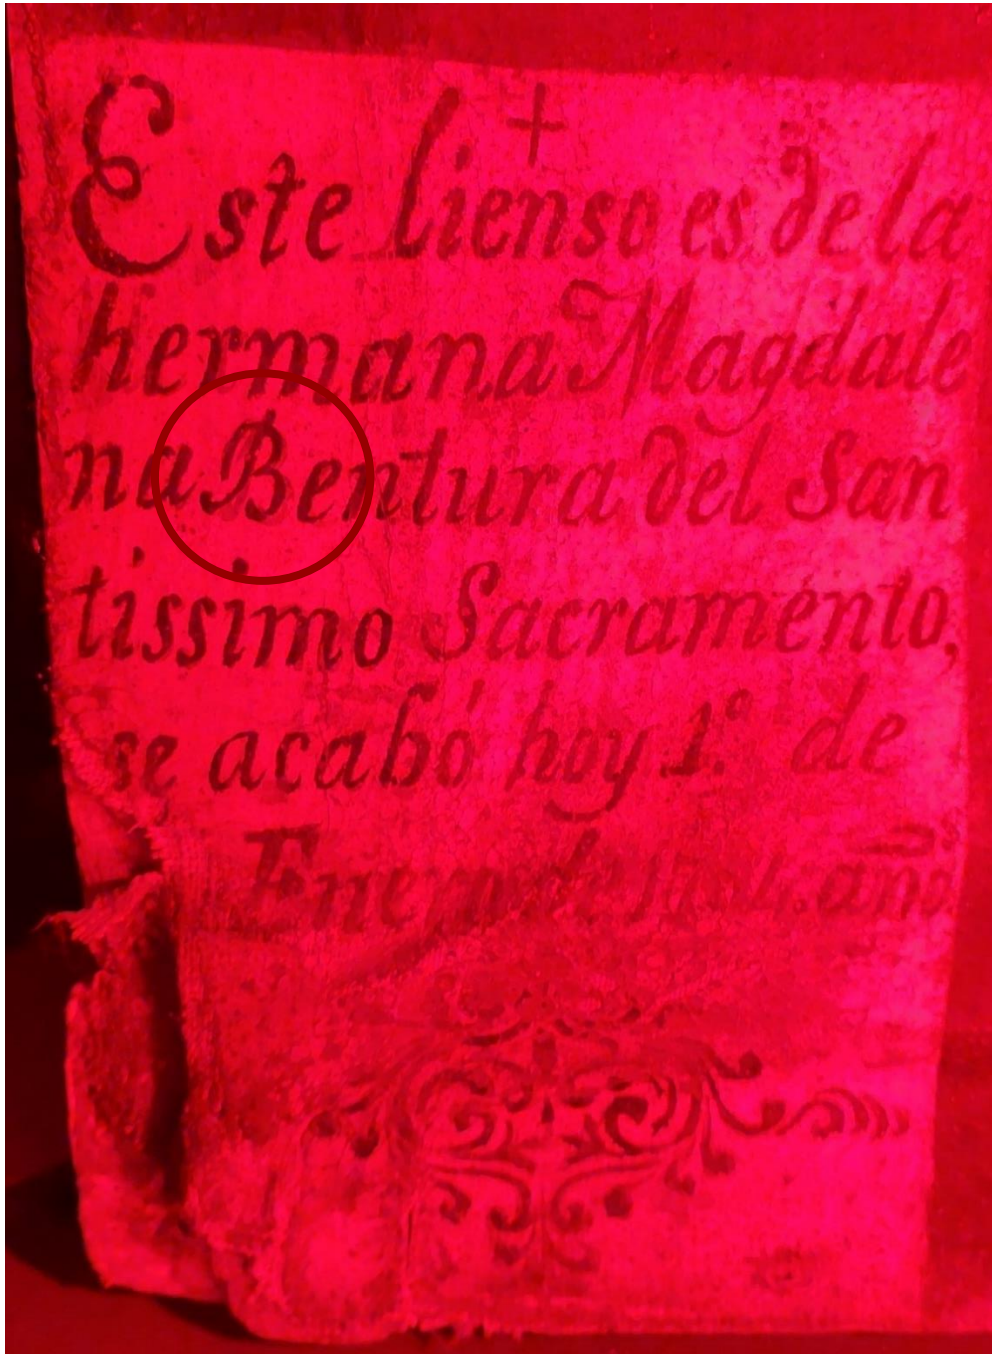 Este lienso es de la
hermana Magdale
na Bentura del San
tissimo Sacramento,
se acabó hoy 1.º de
Enero de año